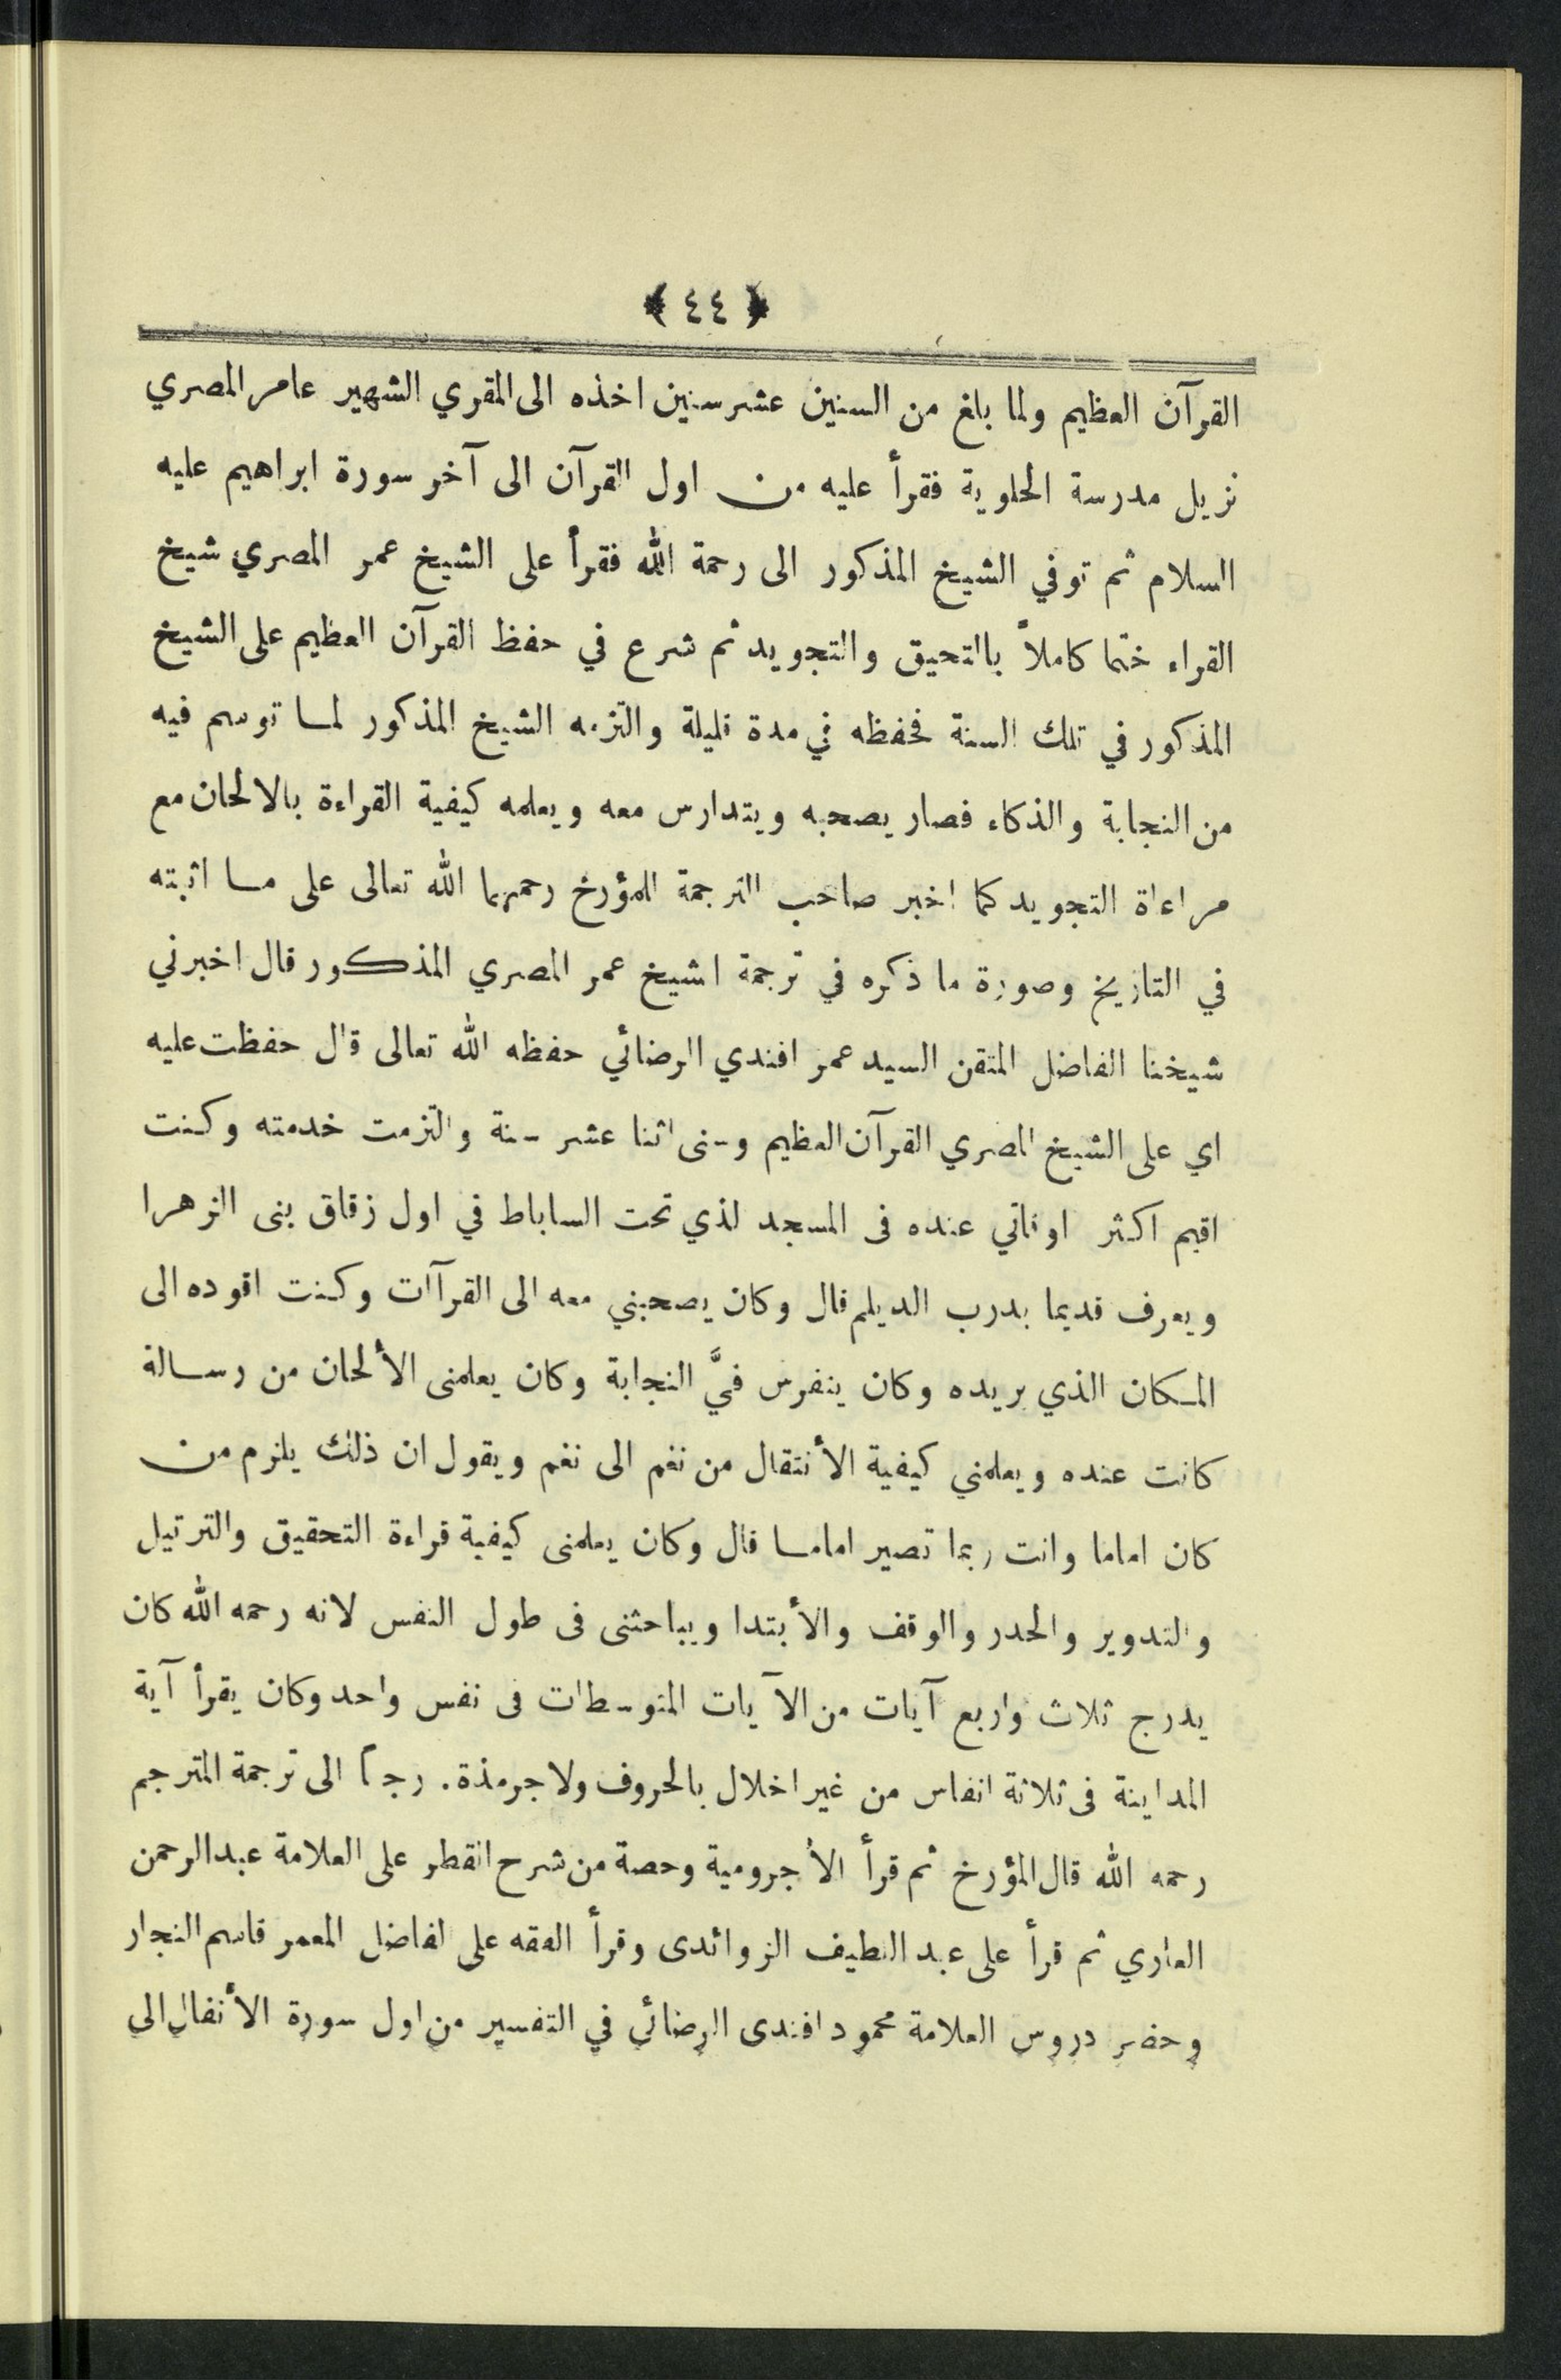 ﴿ ٤٤ ﴾
القرآن العظيم ولما بلغ من السنين عشر سنين اخذه الى المقري الشهير عامر المصري
نزيل مدرسة الحلوية فقرأ عليه من اول القرآن الى آخر سورة ابراهيم عليه
السلام ثم توفي الشيخ المذكور الى رحمة الله فقرأ على الشيخ عمر المصري شيخ
القراء ختما كاملاً باالتحيق والتجويد ثم شرع في حفظ القرآن العظيم على الشيخ
المذكور في تلك السنة فحفظه في مدة قليلة والتزمه الشيخ المذكور لما توسم فيه
من النجابة والذكاء فصار يصحبه ويتدارس معه ويعلمه كيفية القراءة بالالحان مع
مراعاة التجويد كما اخبر صاحب الترجمة المؤرخ رحمهما الله تعالى على ما اثبته
في التاريخ وصورة ما ذكره في ترجمة اشيخ عمر المصري المذكور قال اخبرني
شيخنا الفاضل المتقن السيد عمر افندي الرضائي حفظه الله تعالى قال حفظت عليه
اي على الشيخ المصري القرآن العظيم وسنى اثنا عشر سنة والتزمت خدمته وكنت
اقيم اكثر اوقاتي عنده فى المسجد لذي تحت الساباط في اول زقاق بنى الزهرا
ويعرف قديما بدرب الديلم قال وكان يصحبني معه الى القرآات وكنت اقوده الى
المكان الذي يريده وكان يتفرس فيَّ النجابة وكان يعلمنى الألحان من رسالة
كانت عنده ويعلمني كيفية الأنتقال من نغم الى نغم ويقول ان ذلك يلزم من
كان اماما وانت ربما تصير اماما قال وكان يعلمنى كيفية قراءة التحقيق والترتيل
والتدوير والحدر والوقف والأبتدا ويباحثنى فى طول النفس لانه رحمه الله كان
يدرج ثلاث واربع آيات من الآيات المتوسطات فى نفس واحد وكان يقرأ آية
المداينة فى ثلاثة انفاس من غير اخلال بالحروف ولا جرمذة. رجع الى ترجمة المترجم
رحمه الله قال المؤرخ ثم قرأ الأجرومية وحصة من شرح القطر على العلامة عبد الرحمن
العاري ثم قرأ على عبد اللطيف الزوائدى وقرأ الفقه على لفاضل المعمر قاسم النجار
وحضر دروس العلامة محمود افندى الرضائي في التفسير من اول سورة الأنفال الى